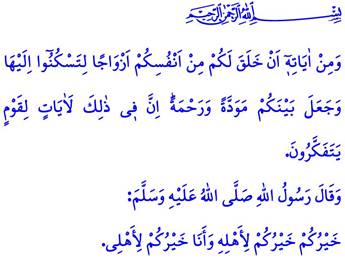 بِسْمِ اللهِ الرَّحْمٰنِ الرَّحِيمِ
وَمِنْ اٰيَاتِهٖٓ اَنْ خَلَقَ لَكُمْ مِنْ اَنْفُسِكُمْ اَزْوَاجًا لِتَسْكُنُٓوا اِلَيْهَا
وَجَعَلَ بَيْنَكُمْ مَوَدَّةً وَرَحْمَةًۜ اِنَّ فٖى ذٰلِكَ لَاٰيَاتٍ لِقَوْمٍ
يَتَفَكَّرُونَ.
وَقَالَ رَسُولُ اللهِ صَلَّى اللهُ عَلَيْهِ وَسَلَّمَ:
خَيْرُكُمْ خَيْرُكُمْ لِاَهْلِهِ وَأَنَا خَيْرُكُمْ لِاَهْلِى.